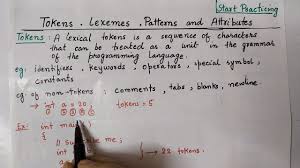 Start Practicing
Tokens, Lexemes, Patterns and Attributes
Tokens: A lexical tokens is a sequence of characters
that can be treated as a unit in the grammar
of the programming language.
eg: identifiers, keywords, operators, special symbol,
constants
eg of non-tokens: comments, tabs, blanks, newline
→ int a = 20; tokens = 5
① ② ③ ④ ⑤
Ex: int ma
{
//
me;
→ 22 tokens.